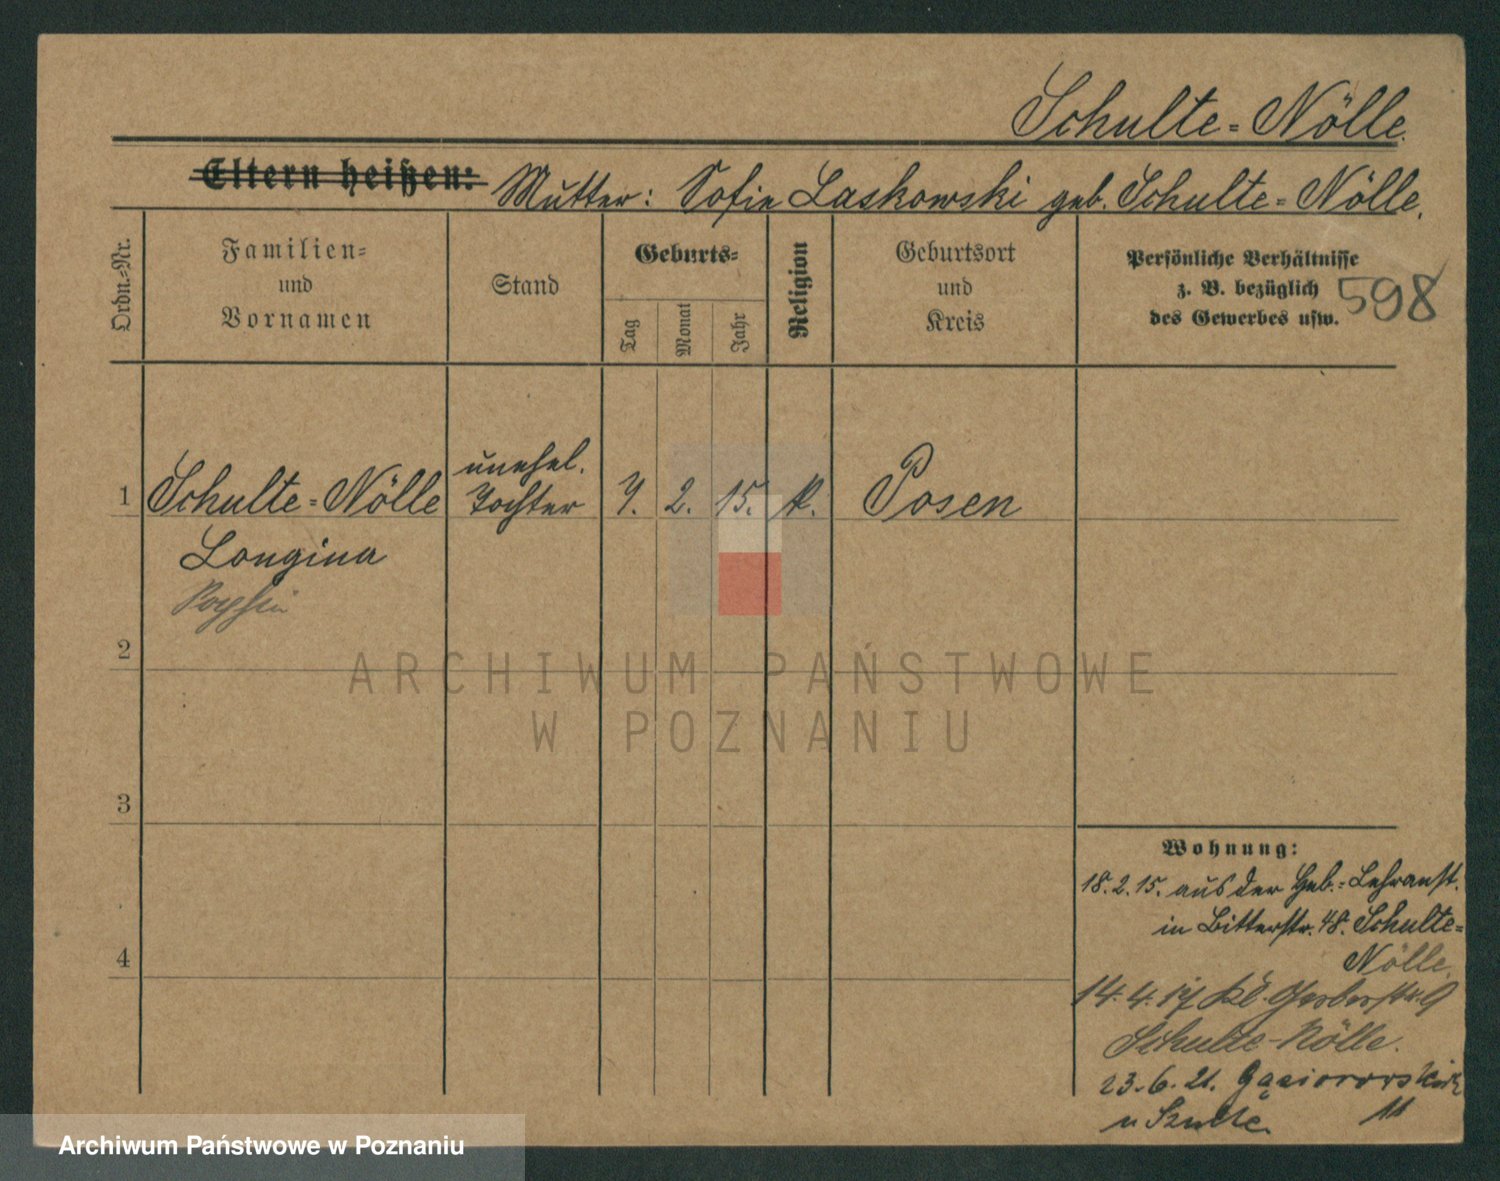 Schulte=Nölle.
Eltern heißen: Mutter: Sofie Laskowski geb. Schulte=Nölle.
Ordn.=Nr.
Familien=
und
Vornamen
Stand
Geburts=
Tag
Monat
Jahr
Religion
Geburtsort
und
Kreis
Persönliche Verhältnisse
z. B. bezüglich
des Gewerbes usw.
598
unehel.
1 Schulte=Nölle Tochter 7. 2. 15. k. Posen
Longina
2
3
4
Wohnung:
18.2.15. aus der Heb.=Lehranst.
in Bitterstr. 48. Schulte=
Nölle.
14.4.17 Kl. Gerberstr. 9
Schulte-Nölle.
23.6.21. Gąsiorowskich
u Szulte. 11
ARCHIWUM PAŃSTWOWE
W POZNANIU
Archiwum Państwowe w Poznaniu